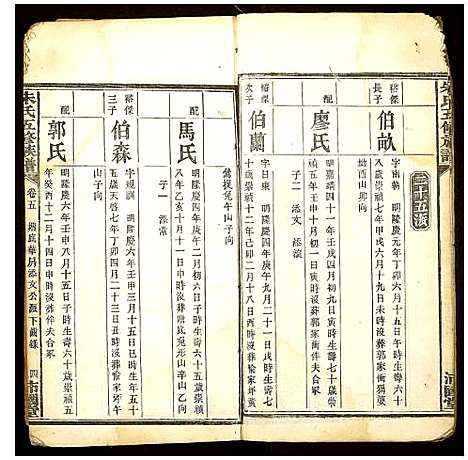 二十五派
裕傑長子
伯畝
字南勲 明隆慶元年丁卯六月十六日寅時生壽六十
八歲崇禎七年甲戌六月十九日未時沒葬郭家衝獨
坳酉山卯向
配
廖氏
明嘉靖四十一年壬戌四月初六日寅時生壽七十五歲崇
禎五年壬申十月初一日戌時沒葬郭家衝伴夫合冢
子二 添文 添浪
裕傑次子
伯蘭
字日東 明隆慶四年庚午九月二十一日亥時生壽七
十歲崇禎十二年己卯二月十八日酉時沒葬喻家坪
鶯捉兔午山子向
配
馬氏
明隆慶四年庚午二月初六日子時生壽六十六歲崇禎
八年乙亥十月十一日申時沒葬兔形山辛山乙向
子一 添常
裕傑三子
伯森
字規調 明隆慶六年壬申三月十五日巳時生壽五十
五歲天啓七年丁卯四月二十三日丑時沒葬喻家坪午
山子向
配
郭氏
明隆慶六年壬申八月十五日子時生壽六十二歲崇禎五
年癸酉十二月十四日申時沒葬伴夫合冢
朱氏五修族譜
卷五
增底華房添文公派下齒錄
四
沛國堂